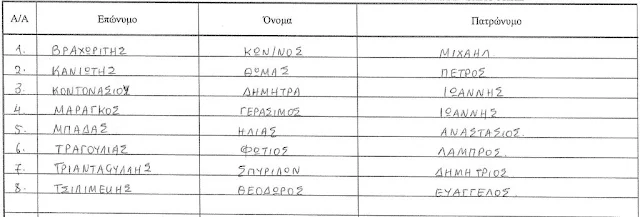 Α/Α Επώνυμο Όνομα Πατρώνυμο
1. ΒΡΑΧΩΡΙΤΗΣ ΚΩΝ/ΝΟΣ ΜΙΧΑΗΛ
2. ΚΑΝΙΩΤΗΣ ΘΩΜΑΣ ΠΕΤΡΟΣ
3. ΚΟΝΤΟΝΑΣΙΟΥ ΔΗΜΗΤΡΑ ΙΩΑΝΝΗΣ
4 ΜΑΡΑΓΚΟΣ ΓΕΡΑΣΙΜΟΣ ΙΩΑΝΝΗΣ
5. ΜΠΑΔΑΣ ΗΛΙΑΣ ΑΝΑΣΤΑΣΙΟΣ.
6. ΤΡΑΓΟΥΛΙΑΣ ΦΩΤΙΟΣ ΛΑΜΠΡΟΣ.
7. ΤΡΙΑΝΤΑΦΥΛΛΗΣ ΣΠΥΡΙΔΩΝ ΔΗΜΗΤΡΙΟΣ
8. ΤΣΙΛΙΜΕΚΗΣ ΘΕΟΔΩΡΟΣ ΕΥΑΓΓΕΛΟΣ